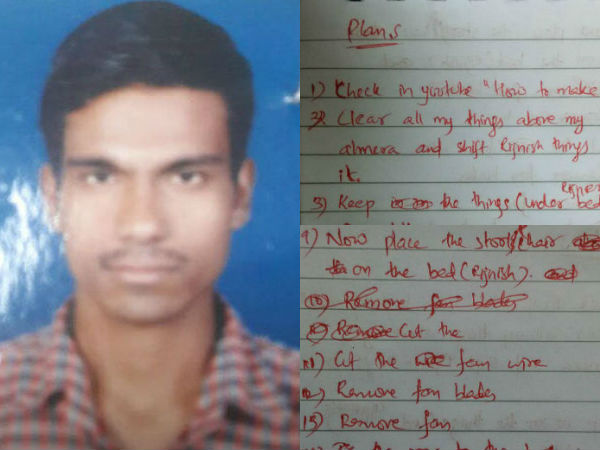 Plans
1) Check in youtube "How to make
2) Clear all my things above my
almera and shift Rijnish things
it.
3) Keep the things (under bed
9) Now place the stool/chair
on the bed (Rijnish).
10) Remove fan blades
Cut the
11) Cut the fan wire
12) Remove fan blades
13) Remove fan